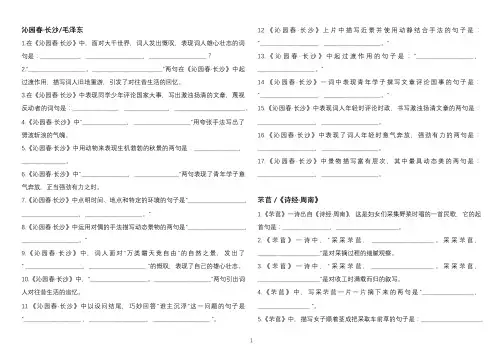 沁园春·长沙/毛泽东
1.在《沁园春·长沙》中，面对大千世界，词人发出慨叹，表现词人雄心壮志的词
句是：________________，________________，________________？
2."________________，________________"两句在《沁园春·长沙》中起
过渡作用，描写词人旧地重游，引发了对往昔生活的回忆。
3.在《沁园春·长沙》中表现同学少年评论国家大事，写出激浊扬清的文章，蔑视
反动者的词句是：________________，________________，________________。
4.《沁园春·长沙》中"________________，________________"用夸张手法写出了
劈波斩浪的气魄。
5.《沁园春·长沙》中用动物来表现生机勃勃的秋景的两句是：________________，
________________。
6.《沁园春·长沙》中"________________，________________"两句表现了青年学子意
气奔放，正当强劲有力之时。
7.《沁园春·长沙》中点明时间、地点和特定的环境的句子是"________________，
________________，________________。"
8.《沁园春·长沙》中运用对偶的手法描写动态景物的两句是"________________，
________________。"
9.《沁园春·长沙》中，词人面对"万类霜天竞自由"的自然之景，发出了
"________________，________________"的慨叹，表现了自己的雄心壮志。
10.《沁园春·长沙》中，"________________，________________"两句引出词
人对往昔生活的追忆。
11《沁园春·长沙》中以设问结尾，巧妙回答"谁主沉浮"这一问题的句子是
"________________，________________，________________"。
12《沁园春·长沙》上片中描写近景并使用动静结合手法的句子是：
"________________，________________。"
13.《沁园春·长沙》中起过渡作用的句子是："________________，
________________。"
14《沁园春·长沙》一词中表现青年学子撰写文章评论国事的句子是：
"________________，________________。"
15.《沁园春·长沙》中表现词人年轻时评论时政，书写激浊扬清文章的两句是：
________________，________________。
16.《沁园春·长沙》中表现了词人年轻时意气奔放，强劲有力的两句是：
________________，________________。
17.《沁园春·长沙》中景物描写富有层次，其中最具动态美的两句是：
________________，________________。
芣苢 /《诗经·周南》
1.《芣苢》一诗出自《诗经·周南》，这是妇女们采集野菜时唱的一首民歌，它的起
首句是：________________，________________。
2.《芣苢》一诗中，"采采芣苢，________________。采采芣苢，
________________"是对采摘过程的细腻观察。
3.《芣苢》一诗中，"采采芣苢，________________。采采芣苢，
________________"是对收工时满载而归的叙写。
4.《芣苢》中，写采芣苢一片一片摘下来的两句是"________________，
________________"。
5.《芣苢》中，描写女子顺着茎成把采取车前草的句子是：________________
1